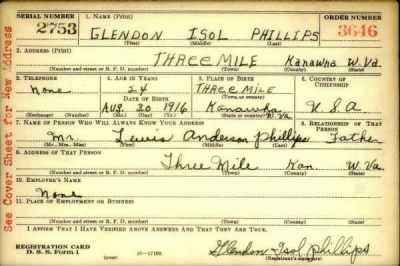 SERIAL NUMBER 1. NAME (Print) ORDER NUMBER
2753 GLENDON ISOL PHILLIPS 3646
(First) (Middle) (Last)
2. ADDRESS (Print)
THREE MILE Kanawha W. Va.
(Number and street or R. F. D. number) (Town) (County) (State)
3. TELEPHONE 4. AGE IN YEARS 5. PLACE OF BIRTH 6. COUNTRY OF CITIZENSHIP
None 24 THREE MILE
DATE OF BIRTH (Town or county)
Aug. 20 1916 Kanawha W. Va. U S A
(Exchange) (Number) (Mo.) (Day) (Yr.) (State or country)
7. NAME OF PERSON WHO WILL ALWAYS KNOW YOUR ADDRESS 8. RELATIONSHIP OF THAT PERSON
Mr. Lewis Anderson Phillips Father
(Mr., Mrs., Miss) (First) (Middle) (Last)
9. ADDRESS OF THAT PERSON
Three Mile Kan. W. Va.
(Number and street or R. F. D. number) (Town) (County) (State)
10. EMPLOYER'S NAME
None
11. PLACE OF EMPLOYMENT OR BUSINESS
(Number and street or R. F. D. number) (Town) (County) (State)
I AFFIRM THAT I HAVE VERIFIED ABOVE ANSWERS AND THAT THEY ARE TRUE.
REGISTRATION CARD
D. S. S. Form 1 (over) Glendon Isol Phillips
(Registrant's signature)
See Cover Sheet for New Address